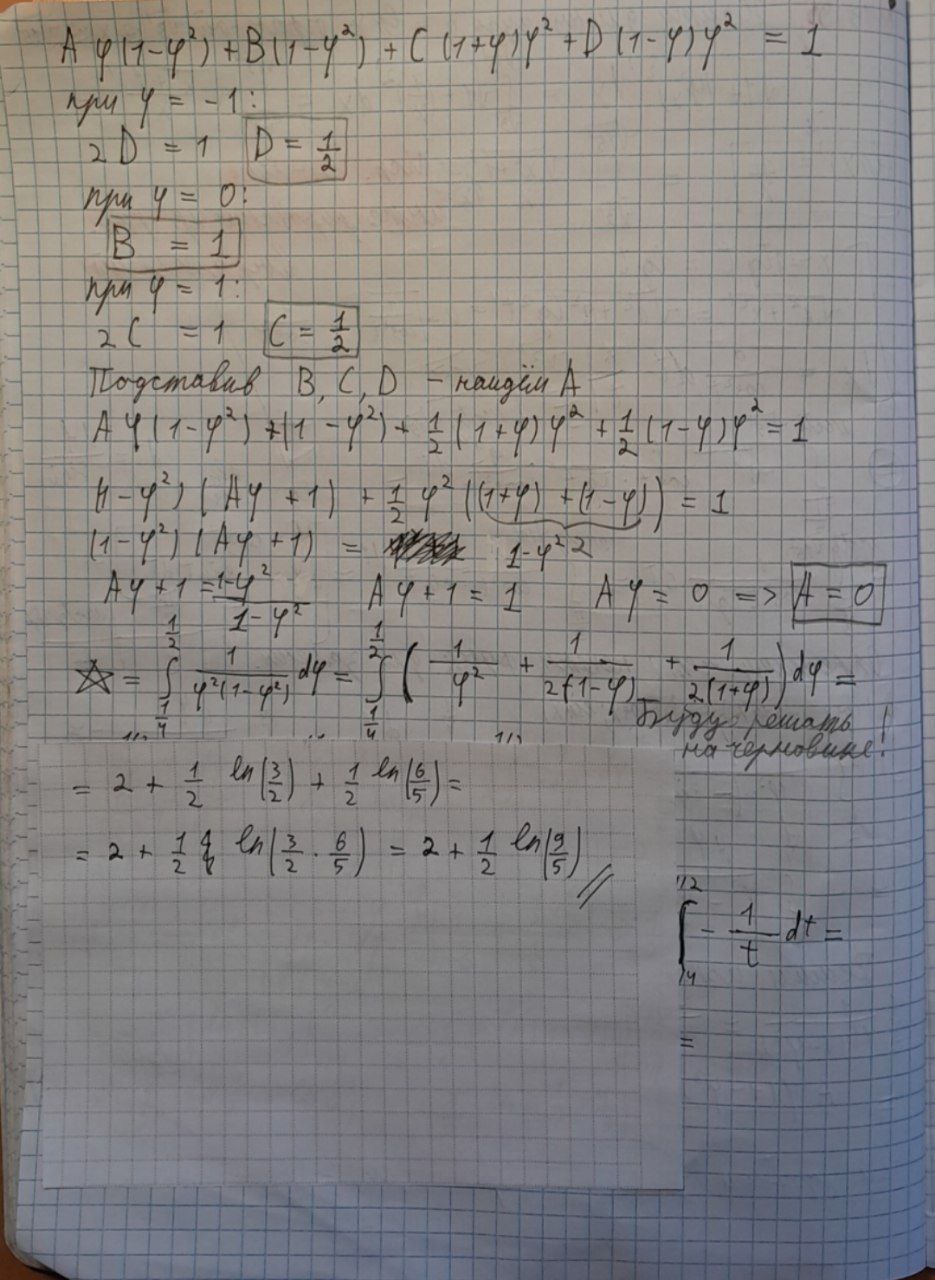 A φ(1-φ²) + B(1-φ²) + C(1+φ)φ² + D(1-φ)φ² = 1
при φ = -1:
2D = 1 D = 1/2
при φ = 0:
B = 1
при φ = 1:
2C = 1 C = 1/2
Подставив B, C, D - найдём A
Aφ(1-φ²) + (1-φ²) + 1/2 (1+φ)φ² + 1/2 (1-φ)φ² = 1
(1-φ²)(Aφ + 1) + 1/2 φ²((1+φ) + (1-φ)) = 1
2
(1-φ²)(Aφ + 1) = 1-φ²
Aφ + 1 = 1-φ²/1-φ² Aφ + 1 = 1 Aφ = 0 => A = 0
☆ = ∫_{1/4}^{1/2} 1/φ²(1-φ²) dφ = ∫_{1/4}^{1/2} (1/φ² + 1/2(1-φ) + 1/2(1+φ)) dφ =
Буду решать
на черновике!
= 2 + 1/2 ln(3/2) + 1/2 ln(6/5) =
= 2 + 1/2 ln(3/2 · 6/5) = 2 + 1/2 ln(9/5) //
∫ - 1/t dt =
=